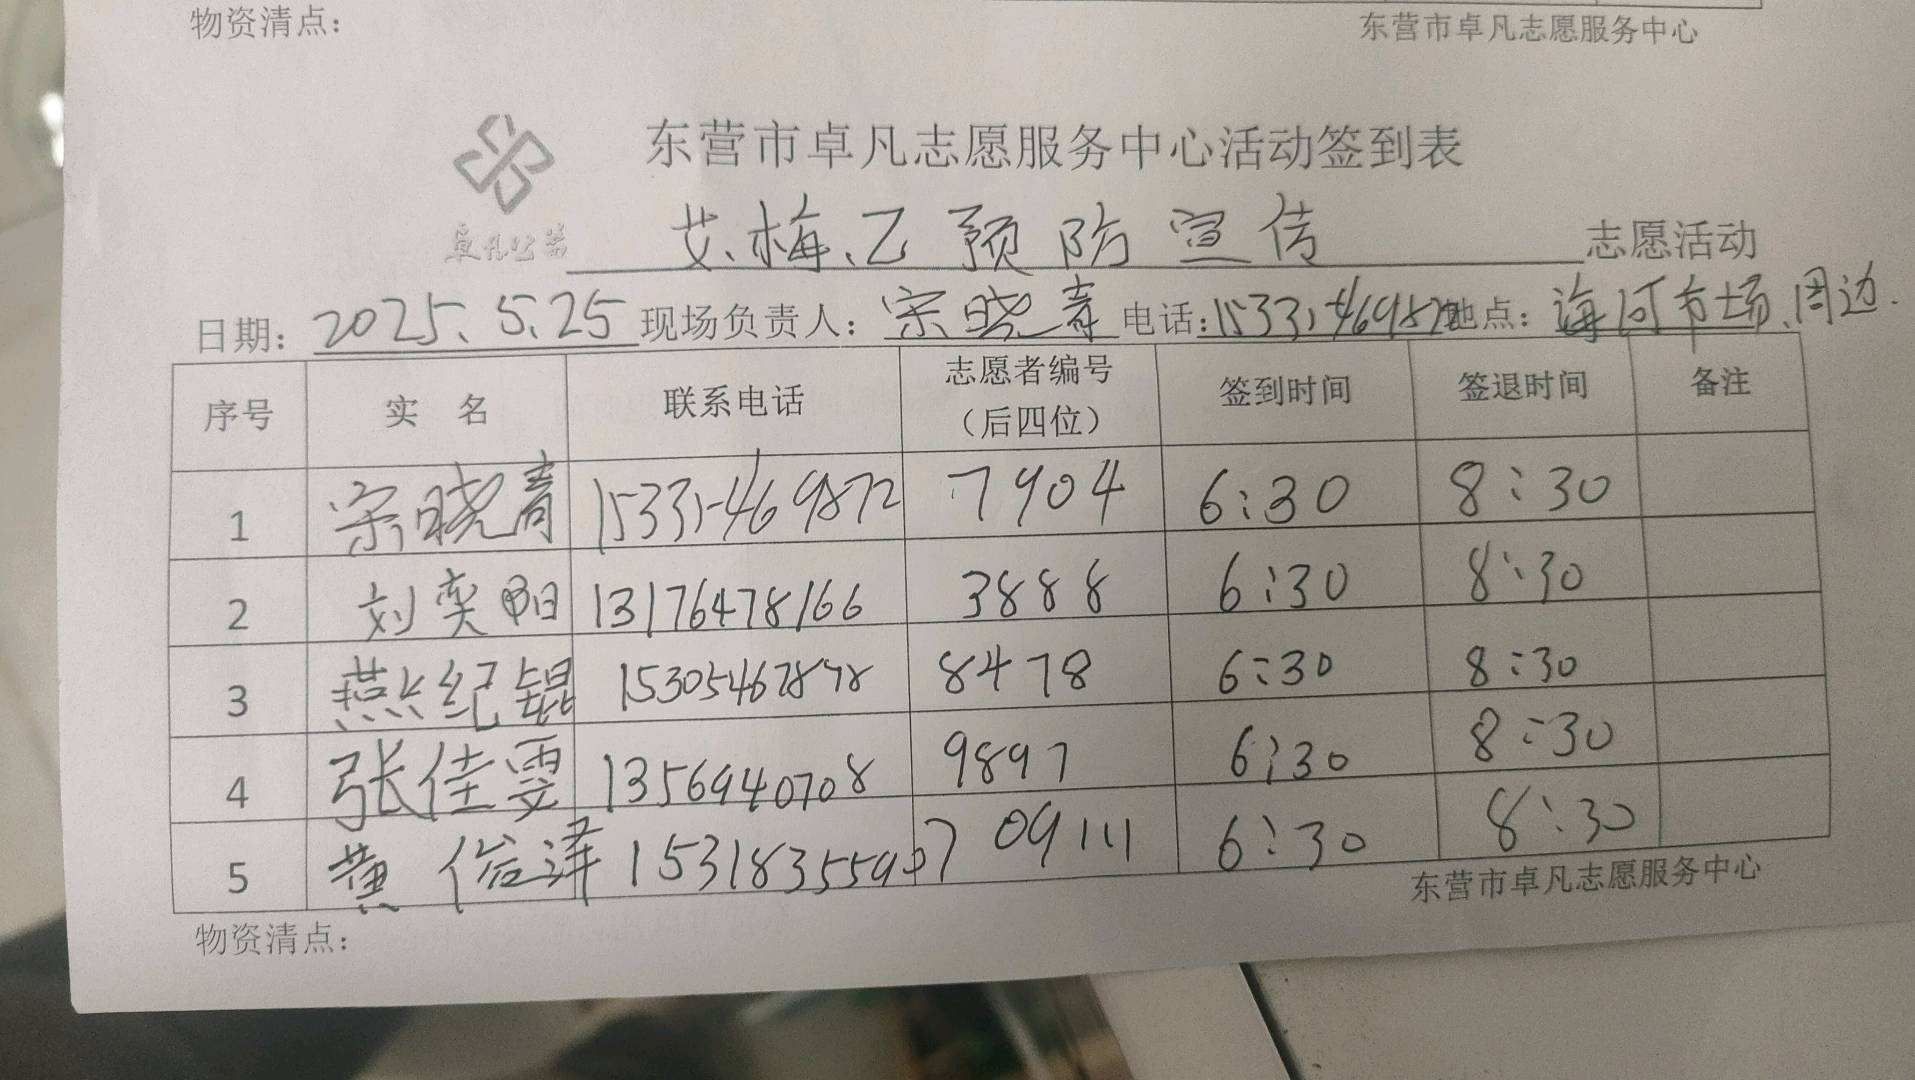 物资清点：
东营市卓凡志愿服务中心
东营市卓凡志愿服务中心活动签到表
卓凡公益
艾、梅、乙预防宣传 志愿活动
日期：2025.5.25 现场负责人：宗晓青 电话：15331469872 地点：海河市场周边.
序号 实 名 联系电话 志愿者编号（后四位） 签到时间 签退时间 备注
1 宗晓青 15331469872 7904 6:30 8:30
2 刘奕阳 13176478166 3888 6:30 8:30
3 燕纪锟 15305467878 8478 6:30 8:30
4 张佳雯 13569440708 9897 6:30 8:30
5 黄俗泽 15318355907 09111 6:30 8:30
东营市卓凡志愿服务中心
物资清点：